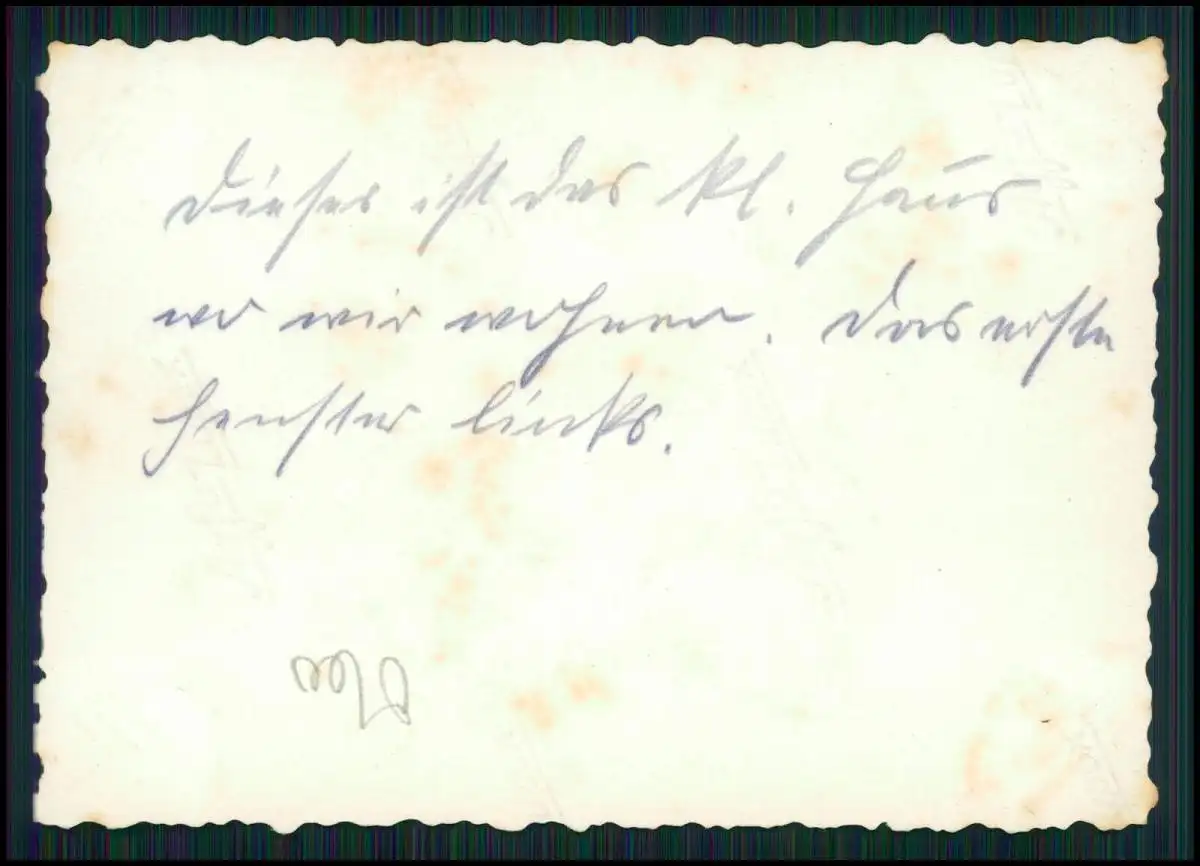 Dieses ist das kl. Haus
wo wir wohnen. Das erste
Fenster links.